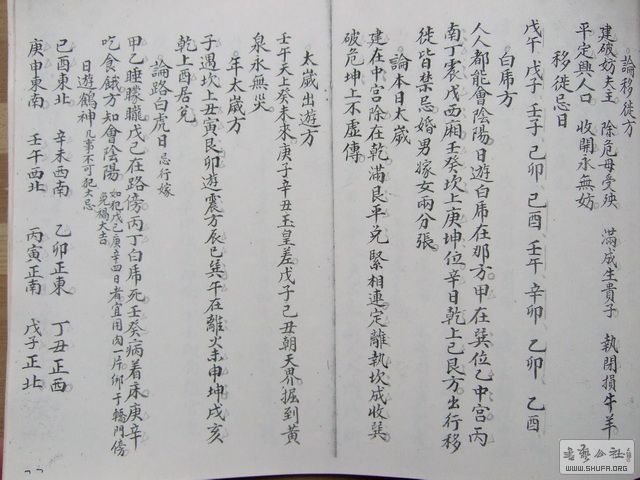 論移徙方
建破妨夫主 除危母受殃 滿成生貴子 執閉損牛羊
平定興人口 收開永無妨
移徙忌日
戊午 戊子 壬子 己卯 己酉 壬午 辛卯 乙卯 乙酉
白席方
人人都能會陰陽日遊白席在那方甲在巽位乙中宮丙
南丁震戊西廂壬癸坎上庚坤位辛日乾上己艮方出行移
徙皆禁忌婚男嫁女兩分張
論本日太歲
建在中宮除在乾滿艮平兌緊相連定離執坎成收巽
破危坤上不虛傳
太歲出遊方
壬午天上癸未來庚子辛丑玉皇差戊子己丑朝天界掘到黃
泉永無災
年太歲方
子遇坎上丑寅艮卯遊震方辰巳巽午在離火未申坤戌亥
乾上酉居兌
論路白虎日 忌行嫁
甲乙睡朦朧戊己在路傍丙丁白席死壬癸病着床庚辛
吃食餓方知會陰陽 如犯戊己庚辛四日者宜用肉一片綁于轎門傍
免稿大吉
日遊鶴神 凡事不可犯大忌
己酉東北 辛未西南 乙卯正東 丁丑正西
庚申東南 壬午西北 丙寅正南 戊子正北
書藝公社
WWW.SHUFA.ORG